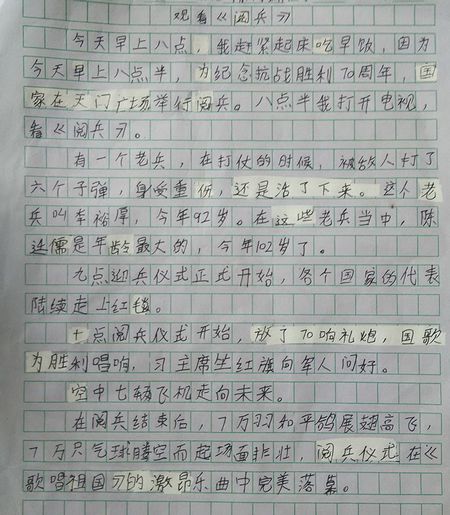 观看《阅兵》
今天早上八点，我赶紧起床吃早饭，因为
今天早上八点半，为纪念抗战胜利70周年，国
家在天门广场举行阅兵。八点半我打开电视，
看《阅兵》。
有一个老兵，在打仗的时候，被敌人打了
六个子弹，身受重伤，还是活了下来。这个老
兵叫李裕厚，今年92岁。在这些老兵当中，陈
廷儒是年龄最大的，今年102岁了。
九点迎兵仪式正式开始，各个国家的代表
陆续走上红毯。
十点阅兵仪式开始，放了70响礼炮，国歌
为胜利唱响，习主席坐红旗向军人问好。
空中七辆飞机走向未来。
在阅兵结束后，7万羽和平鸽展翅高飞，
7万只气球腾空而起场面非壮，阅兵仪式在《
歌唱祖国》的激昂乐曲中完美落幕。